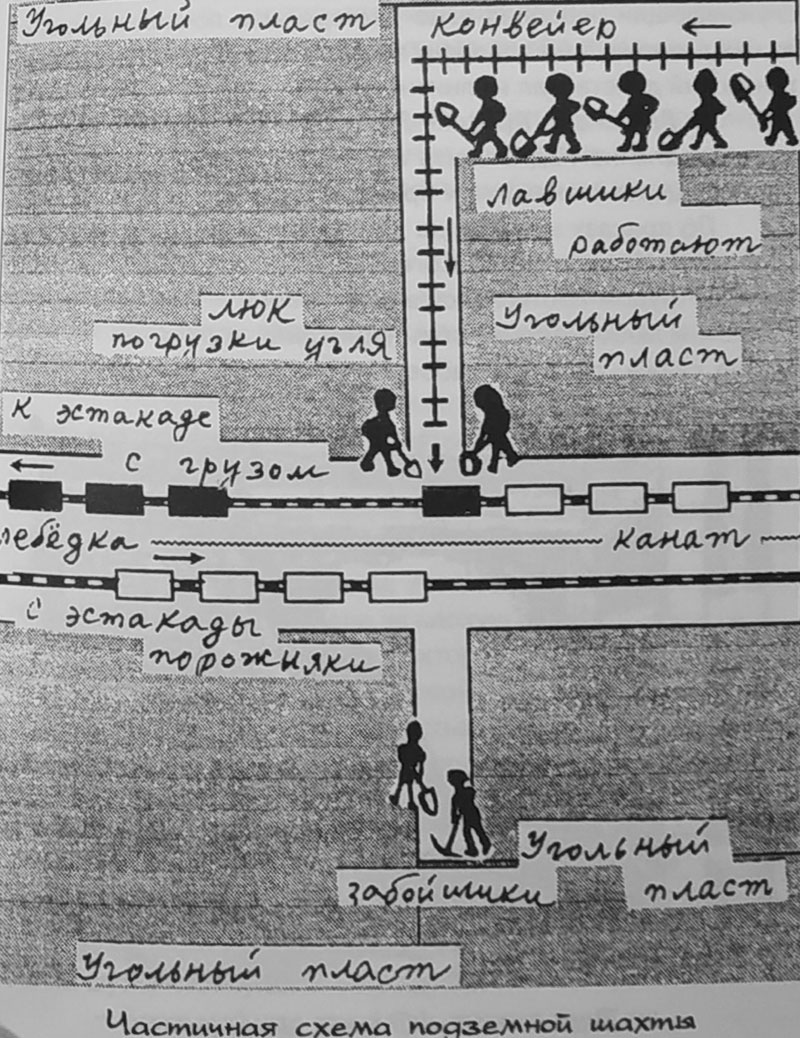 Угольный пласт
конвейер
лавшики
работают
люк
погрузки угля
Угольный
пласт
к эстакаде
с грузом
лебёдка
канат
с эстакады
порожняки
Угольный
пласт
забойшики
Угольный пласт
Частичная схема подземной шахты